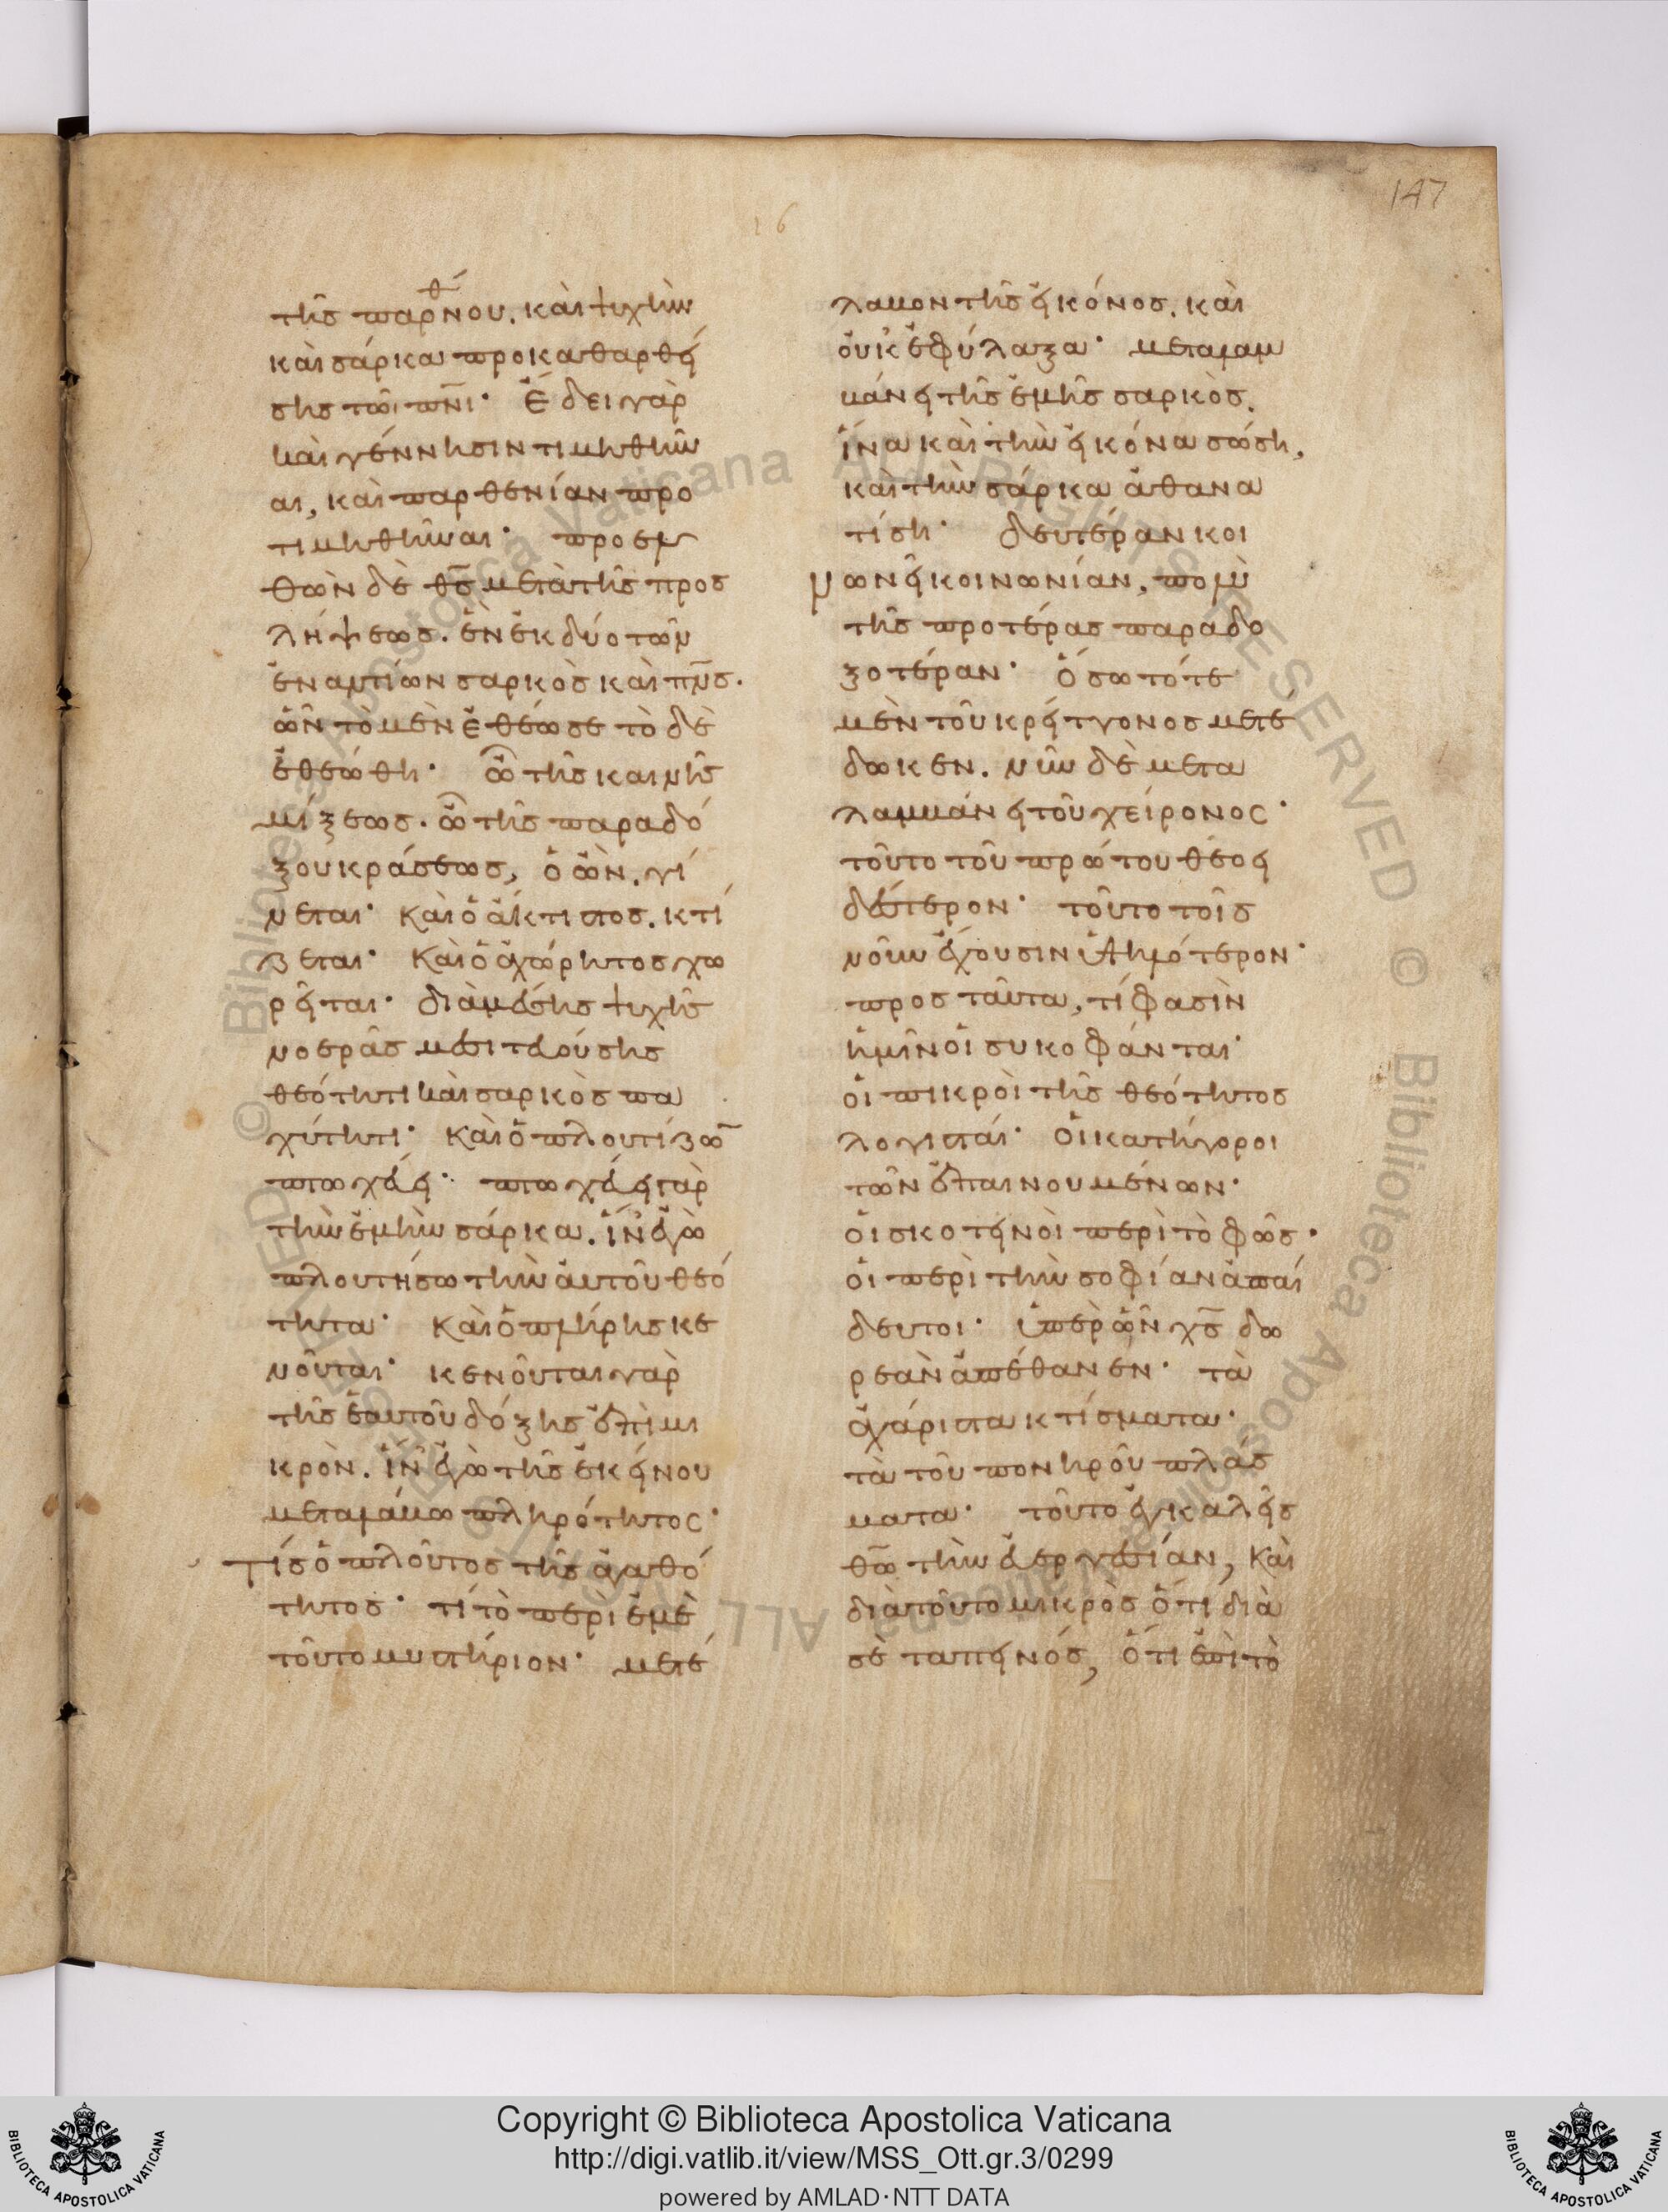 147
16
τῆς παρθένου. καὶ ψυχὴν
καὶ σάρκα προκαθαρθεί
σης τῶι πνι· Ἔδει γὰρ
καὶ γέννησιν τιμηθῆν
αι, καὶ παρθενίαν προ
τιμηθῆναι· προελ
θὼν δὲ θς μετὰ τῆς προσ
λήψεως. ἓν ἐκ δύο τῶν
ἐναντίων σαρκὸς καὶ πνς.
ὧν τὸ μὲν ἐθέωσε τὸ δὲ
ἐθεώθη· ὢ τῆς καινῆς
μίξεως. ὢ τῆς παραδό
ξου κράσεως, ὁ ὢν. γί
νεται· καὶ ὁ ἄκτιστος. κτί
ζεται· καὶ ὁ ἀχώρητος χω
ρεῖται· διὰ μέσης ψυχῆς
νοερᾶς μεσιτευούσης
θεότητι καὶ σαρκὸς πα
χύτητι· καὶ ὁ πλουτίζω
πτωχεύει· πτωχεύει γὰρ
τὴν ἐμὴν σάρκα. ἵν' ἐγὼ
πλουτήσω τὴν αὐτοῦ θεό
τητα· καὶ ὁ πλήρης κε
νοῦται· κενοῦται γὰρ
τῆς ἑαυτοῦ δόξης ἐπὶ μι
κρὸν. ἵν' ἐγὼ τῆς ἐκείνου
μεταλάβω πληρότητος·
Τίς ὁ πλοῦτος τῆς ἀγαθό
τητος· τί τὸ περὶ ἐμὲ
τοῦτο μυστήριον· μετέ
λαβον τῆς εἰκόνος. καὶ
οὐκ ἐφύλαξα· μεταλαμ
βάνει τῆς ἐμῆς σαρκὸς.
ἵνα καὶ τὴν εἰκόνα σώση,
καὶ τὴν σάρκα ἀθανα
τίση· δευτέραν κοι
νωνεῖ κοινωνίαν, πολὺ
τῆς προτέρας παραδο
ξοτέραν· ὅσω τότε
μὲν τοῦ κρείττονος μετέ
δωκεν. νῦν δὲ μετα
λαμβάνει τοῦ χείρονος·
τοῦτο τοῦ πρώτου θεοει
δέστερον· τοῦτο τοῖς
νοῦν ἔχουσιν ὑψηλότερον·
προς ταῦτα, τί φασὶν
ἡμῖν οἱ συκοφάνται·
οἱ πικροὶ τῆς θεότητος
λογισταί· οἱ κατήγοροι
τῶν ἐπαινουμένων·
οἱ σκοτεινοὶ περὶ τὸ φῶς·
οἱ περὶ τὴν σοφίαν ἀπαί
δευτοι· ὑπὲρ ὧν χς δω
ρεὰν ἀπέθανεν· τὰ
ἀχάριστα κτίσματα·
τὰ τοῦ πονηροῦ πλάσ
ματα· τοῦτο ἐγκαλεῖς
θω τὴν εὐεργεσίαν, καὶ
διὰ τοῦτο μικρὸς ὅτι διὰ
σὲ ταπεινός, ὅτι ἐπὶ τὸ
© Biblioteca Apostolica Vaticana ALL RIGHTS RESERVED
Copyright © Biblioteca Apostolica Vaticana
http://digi.vatlib.it/view/MSS_Ott.gr.3/0299
powered by AMLAD·NTT DATA
BIBLIOTECA APOSTOLICA VATICANA
BIBLIOTECA APOSTOLICA VATICANA